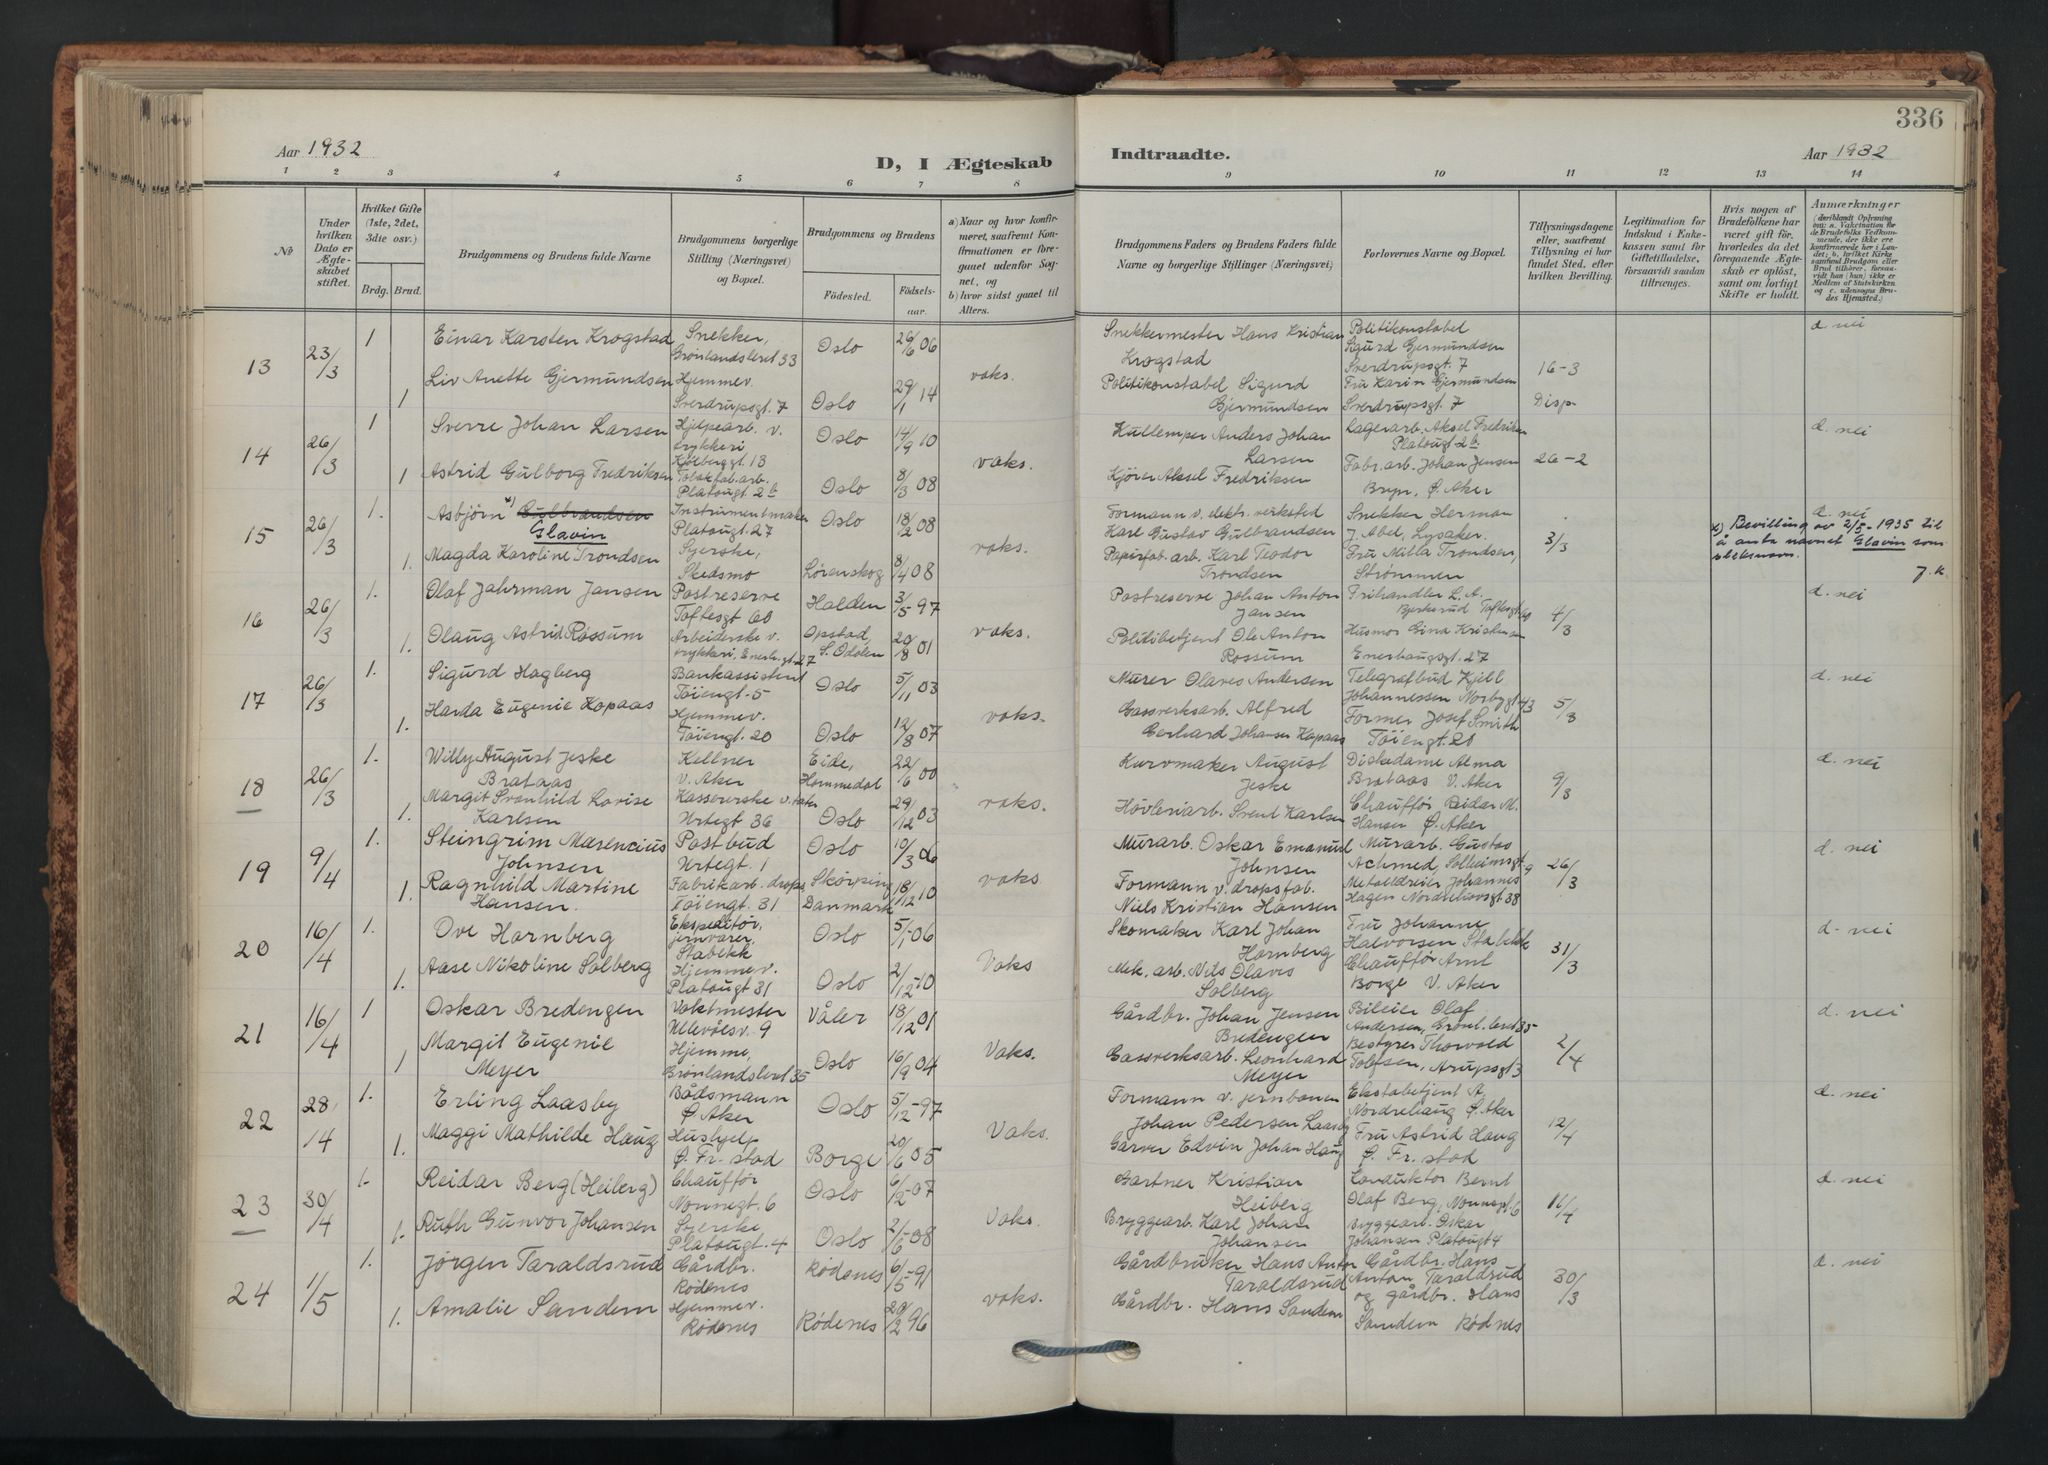 336
Aar 1932
D, I Ægteskab
Indtraadte.
Aar 1932
1 2 3 4 5 6 7 8 9 10 11 12 13 14
№
Under hvilken Dato er Ægteskabet stiftet.
Hvilket Gifte (1ste, 2det, 3die osv.)
Brdg. Brud.
Brudgommens og Brudens fulde Navne
Brudgommens borgerlige Stilling (Næringsvei) og Bopæl.
Brudgommens og Brudens
Födested. Födsels-aar.
a) Naar og hvor konfirmeret, saafremt Konfirmationen er foregaaet udenfor Sognet, og
b) hvor sidst gaaet til Alters.
Brudgommens Faders og Brudens Faders fulde Navne og borgerlige Stillinger (Næringsvei)
Forlovernes Navne og Bopæl.
Tillysningsdagene eller, saafremt Tillysning ei har fundet Sted, efter hvilken Bevilling.
Legitimation for Indskud i Enkekassen samt for Giftetilladelse, forsaavidt saadan tiltrænges.
Hvis nogen af Brudefolkene har været gift för, hvorledes da det foregaaende Ægteskab er oplöst, samt om lovligt Skifte er holdt.
Anmærkninger
13 23/3 1 Einar Karsten Krogstad Snekker, Grønlandsleret 33 Oslo 26/6 06 Snekkermester Hans Kristian Krogstad Politikonstabel Sigurd Gjermundsen Sverdrupsgt. 7 16-3 d. nei
1 Liv Anette Gjermundsen Hjemmev. Sverdrupsgt. 7 Oslo 29/1 14 voks. Politikonstabel Sigurd Gjermundsen Fru Karin Gjermundsen Sverdrupsgt. 7 Disp.
14 26/3 1 Sverre Johan Larsen Hjelpearb. v. trykkeri Kjølberggt. 13 Oslo 14/9 10 Kullemper Anders Johan Larsen Lagerarb. Aksel Fredriksen Platougt 2b d. nei
1 Astrid Gulborg Fredriksen Platougt 2b Oslo 8/3 08 voks. Kjører Aksel Fredriksen Fabr. arb. Johan Jensen Bryn, Ø. Aker 26-2
15 26/3 1. Asbjörn x) Gulbrandsen Glavin Instrumentmaker Platougt. 27 Oslo 18/2 08 Formann v. elektr. verksted Karl Gustav Gulbrandsen Snekker Herman J. Abel, Lysaker. d. nei
1. Magda Karoline Trondsen Syerske, Skedsmo Lørenskog 8/4 08 voks. Papirfab. arb. Karl Teodor Trondsen Fru Milla Trondsen, Strømmen 3/3
x) Bevilling av 2/5-1935 til å anta navnet Glavin som slektsnavn. J. K.
16 26/3 1. Olaf Jahrman Jansen Postreserve Toftesgt 60 Halden 3/5 97 Postreserve Johan Anton Jansen Frihandler L. A. Bjerkerud Toftesgt 60 d. nei
1. Olaug Astrid Rossum Arbeiderske v. trykkeri, Enerh.gt. 27 Opstad, S. Odalen 20/8 01 voks. Politibetjent Ole Anton Rossum Husmor Gina Kristensen Enerhaugsgt. 27 4/3
17 26/3 1. Sigurd Hagberg Bankassistent Töiengt. 5 Oslo 5/11 03 Murer Olaves Andersen Telegrafbud Kjell Johannessen Norbygt 43 d. nei
1. Harda Eugenie Kopaas Hjemmev. Töiengt. 20 Oslo 12/8 07 voks. Gassverksarb. Alfred Gerhard Johansen Kopaas Former Josef Smith Töiengt. 20 5/3
18 26/3 1. Willy August Jeske Brataas Kellner V. Aker Eide, Hommedal 22/6 00 Kurvmaker August Jeske Diskdame Alma Brataas V. Aker d. nei
1. Margit Svanhild Lovise Karlsen Kassererske Urtegt 36 Oslo 29/12 03 voks. Hövleriarb. Svend Karlsen Chaufför Reidar M. Hansen Ø. Aker 9/3
19 9/4 1. Steingrim Maxencius Johnsen Postbud Urtegt. 1 Oslo 10/3 06 Murarb. Oskar Emanuel Johnsen Murarb. Gustav Achmed, Solheimsgt 9 d. nei
1. Ragnhild Martine Hansen. Fabrikarb. drops Töiengt. 31 Skörping Danmark 18/12 10 voks. Formann v. dropsfab. Niels Kristian Hansen Metalldreier Johannes Hagen Nordrehovsgt 38 26/3
20 16/4 1. Ove Hornberg Ekspeditör, jernvarer, Stabekk Oslo 5/1-06 Skomaker Karl Johan Hornberg Fru Johanne Halvorsen Stabekk d. nei
1. Aase Nikoline Solberg Hjemmev. Platougt 31 Oslo 2/12-10 Voks Mek. arb. Nils Olaves Solberg Chaufför Arnt Borge V. Aker 31/3
21 16/4 1 Oskar Bredengen Vaktmester Ullevålsv. 9 Våler 18/12 01 Gårdbr. Johan Jensen Bredengen Bileier Olaf Andersen, Grønl. leret 35 d. nei
1 Margit Eugenie Meyer Hjemme, Grönlandsleret 35 Oslo 16/9 04 Voks. Gassverksarb. Leonhard Meyer Bestyrer Thorvald Tolfsen, Arupsgt 3 2/4
22 28/4 1. Erling Laasby Bådsmann Ø. Aker Oslo 5/12-97 Formann v. jernbanen Johan Pedersen Laasby Ekstabetjent A. Nordrehaug Ø. Aker d. nei
1. Maggi Mathilde Haug Hushjelp Ø. Fr. stad Borge 20/6 05 Voks. Garver Edvin Johan Haug Fru Astrid Haug Ø. Fr. stad 12/4
23 30/4 1. Reidar Berg (Heiberg) Chaufför Nonnegt. 6 Oslo 6/2-07 Gartner Kristian Heiberg Konduktør Bernt Olaf Berg, Nonnegt 6 d. nei
1. Ruth Gunvor Johansen Syerske Platougt. 4 Oslo 2/6-08 Voks. Bryggearb. Karl Johan Johansen Bryggearb. Oskar Johansen Platougt 4 16/4
24 1/5 1. Jörgen Taraldsrud Gårdbr. Rödenes Rödenes 6/5-91 Gårdbruker Hans Anton Taraldsrud Gårdbr. Hans Anton Taraldrud d. nei
1. Amalie Sandem Hjemmev. Rödenes Rödenes 20/2 96 voks. Gårdbr. Hans Sandem og gårdbr. Hans Sandem Rödnes 30/3